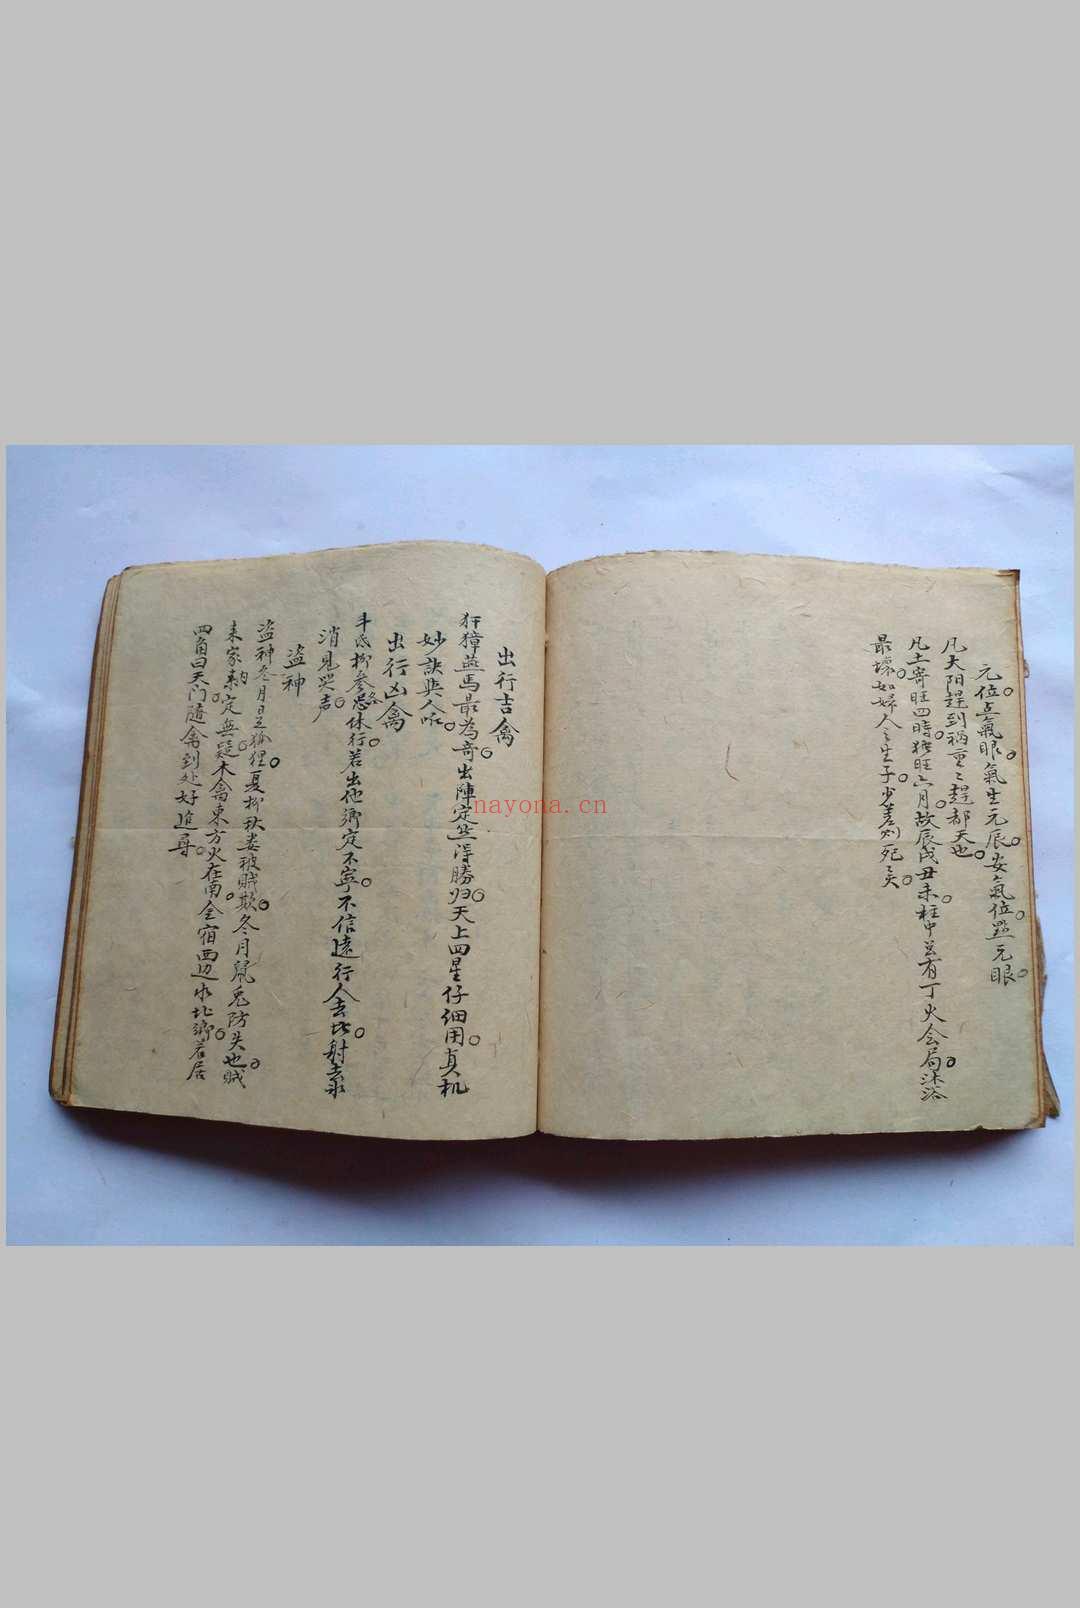 元位点氣眼氣生元辰安氣位點元眼
凡太阳趕到祸重〻趕都天也
凡土寄旺四時獨旺六月故辰戌丑未柱中若有丁火会局沐浴
最壞如婦人之生子少差則死之矣
出行吉禽
犴獐燕馬最為奇出陣定然得勝归天上四星仔細用真机
妙訣與人
出行凶禽
斗氐柳參忌休行若出他鄉定不寧不信遠行人去此財
消見哭声
盜神
盜神冬月是狐狸夏柳秋婁被賊欺冬月鼠兎防失也賊
來家定無疑木禽東方火在南金宿西边水北鄉若居
四角曰天门隨禽到处好追尋
nayona.cn